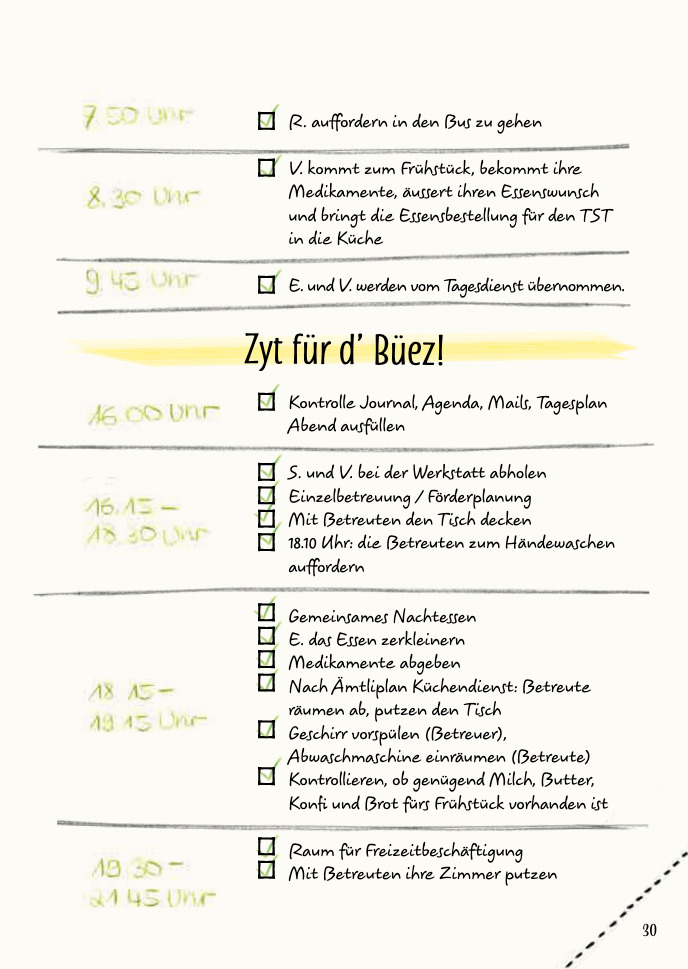 7.50 Uhr
R. auffordern in den Bus zu gehen
8.30 Uhr
V. kommt zum Frühstück, bekommt ihre
Medikamente, äussert ihren Essenswunsch
und bringt die Essensbestellung für den TST
in die Küche
9.45 Uhr
E. und V. werden vom Tagesdienst übernommen.
Zyt für d' Büez!
16.00 Uhr
Kontrolle Journal, Agenda, Mails, Tagesplan
Abend ausfüllen
16.15 –
18.30 Uhr
S. und V. bei der Werkstatt abholen
Einzelbetreuung / Förderplanung
Mit Betreuten den Tisch decken
18.10 Uhr: die Betreuten zum Händewaschen
auffordern
18.15 –
19.15 Uhr
Gemeinsames Nachtessen
E. das Essen zerkleinern
Medikamente abgeben
Nach Ämtliplan Küchendienst: Betreute
räumen ab, putzen den Tisch
Geschirr vorspülen (Betreuer),
Abwaschmaschine einräumen (Betreute)
Kontrollieren, ob genügend Milch, Butter,
Konfi und Brot fürs Frühstück vorhanden ist
19.30 –
21.45 Uhr
Raum für Freizeitbeschäftigung
Mit Betreuten ihre Zimmer putzen
30